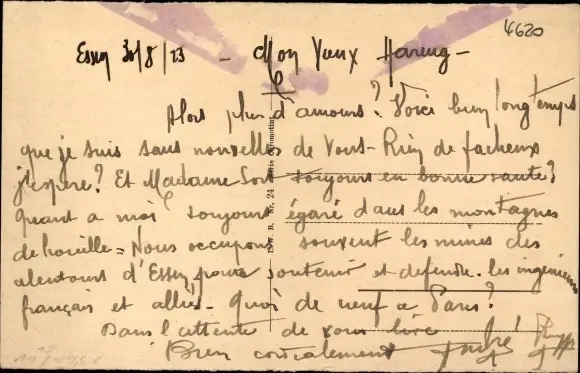 4620
Essen 30/8/23 - Mon Vieux Hareng -
Alors plus d'amours? Voici bien longtemps
que je suis sans nouvelles de Vous - Rien de facheux
j'espère? Et Madame toujours en bonne santé?
Quant a moi toujours égaré dans les montagnes
de houille = Nous occupons souvent les mines des
alentours d'Essen pour soutenir et defendre les ingenieurs
français et alliés - Quoi de neuf a Paris?
Dans l'attente de vous lire
Bien cordialement André
Nr. 24